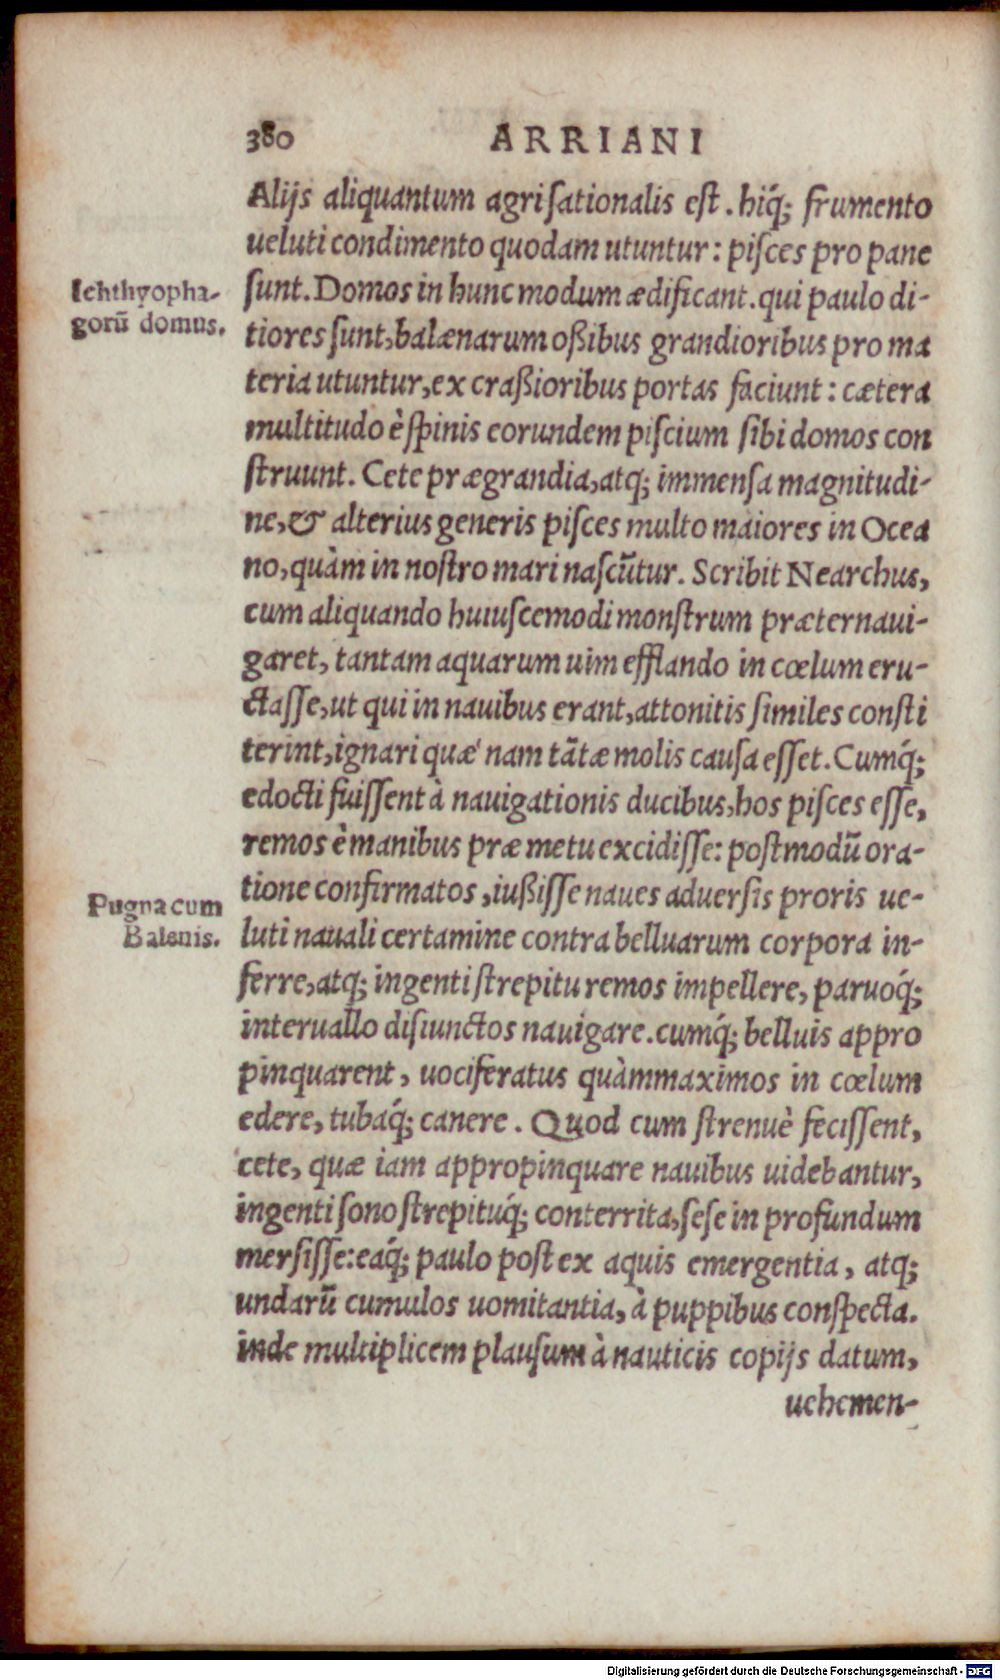 380 ARRIANI
Alijs aliquantum agri sationalis est. hiq́; frumento
ueluti condimento quodam utuntur: pisces pro pane
Ichthyopha-
gorū domus.
sunt. Domos in hunc modum ædificant. qui paulo di-
tiores sunt, balænarum oßibus grandioribus pro ma
teria utuntur, ex craßioribus portas faciunt: cætera
multitudo è spinis eorundem piscium sibi domos con
struunt. Cete prægrandia, atq; immensa magnitudi-
ne, & alterius generis pisces multo maiores in Ocea
no, quàm in nostro mari nascūtur. Scribit Nearchus,
cum aliquando huiuscemodi monstrum præternaui-
garet, tantam aquarum uim efflando in cœlum eru-
ctasse, ut qui in nauibus erant, attonitis similes consti
terint, ignari quæ nam tātæ molis causa esset. Cumq́;
edocti fuissent à nauigationis ducibus, hos pisces esse,
remos è manibus præ metu excidisse: postmodū ora-
tione confirmatos, iußisse naues aduersis proris ue-
Pugna cum
Balenis.
luti nauali certamine contra belluarum corpora in-
ferre, atq; ingenti strepitu remos impellere, paruoq́;
interuallo disiunctos nauigare. cumq́; belluis appro
pinquarent, uociferatus quàmmaximos in cœlum
edere, tubaq́; canere. Quod cum strenuè fecissent,
cete, quæ iam appropinquare nauibus uidebantur,
ingenti sono strepituq́; conterrita, sese in profundum
mersisse: eaq́; paulo post ex aquis emergentia, atq;
undarū cumulos uomitantia, à puppibus conspecta.
inde multiplicem plausum à nauticis copijs datum,
uehemen-
Digitalisierung gefördert durch die Deutsche Forschungsgemeinschaft - DFG